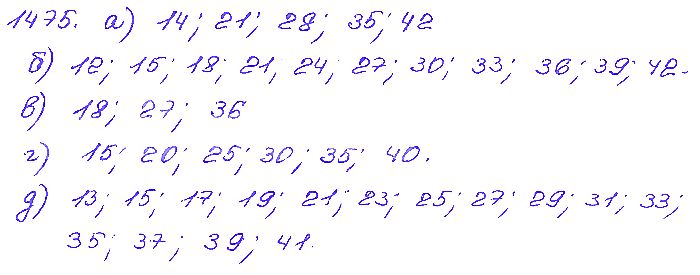 1475. а) 14; 21; 28; 35; 42
б) 12; 15; 18; 21, 24; 27; 30; 33; 36; 39; 42.
в) 18; 27; 36
г) 15; 20; 25; 30; 35; 40.
д) 13; 15; 17; 19; 21; 23; 25; 27; 29; 31; 33;
35; 37; 39; 41.